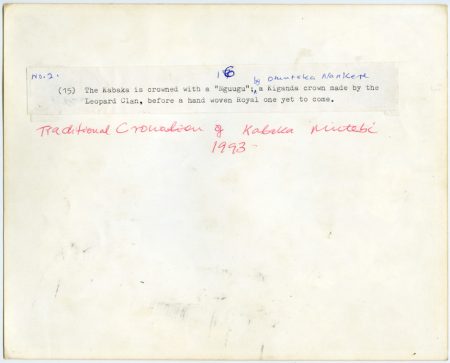 No.2.
16
by Omutaka Nankere
(15) The Kabaka is crowned with a "Eguugu", a Kiganda crown made by the
Leopard Clan, before a hand woven Royal one yet to come.
Traditional Cronation of Kabaka Mutebi
1993-